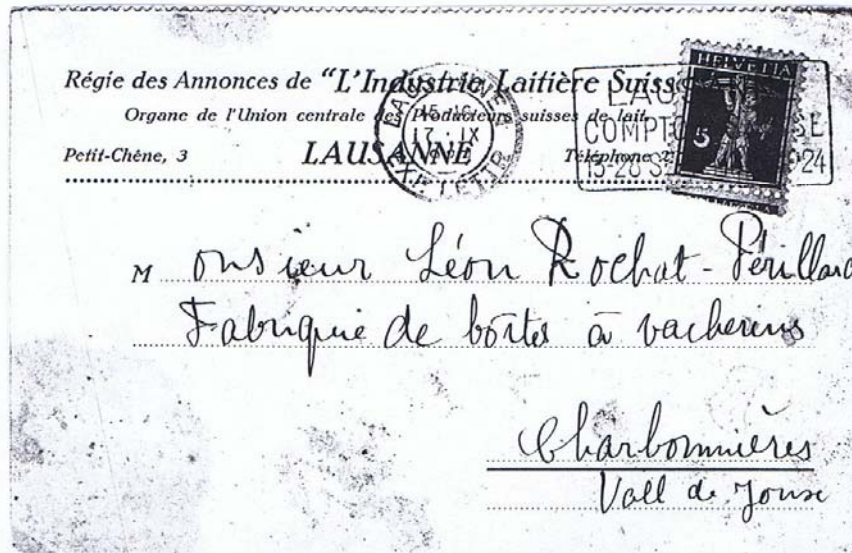 Régie des Annonces de "L'Industrie Laitière Suisse
Organe de l'Union centrale des Producteurs suisses de lait
Petit-Chêne, 3 LAUSANNE Téléphone
LAUSANNE
15-16
17. IX
EXP. LETTR.
LAU
COMPTO SE
15-28 S 24
HELVETIA
5
Monsieur Léon Rochat-Périllard
Fabrique de boîtes à vacherins
Charbonnières
Vall de Joux